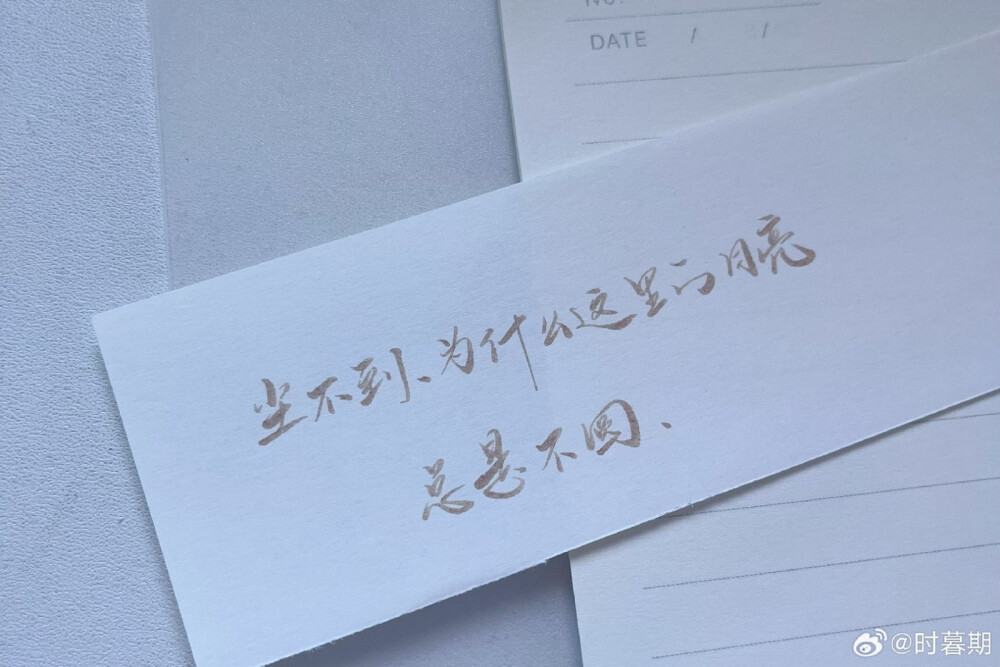 NO.
DATE / /
尘不到、为什么这里的月亮
总是不圆、
@时暮期